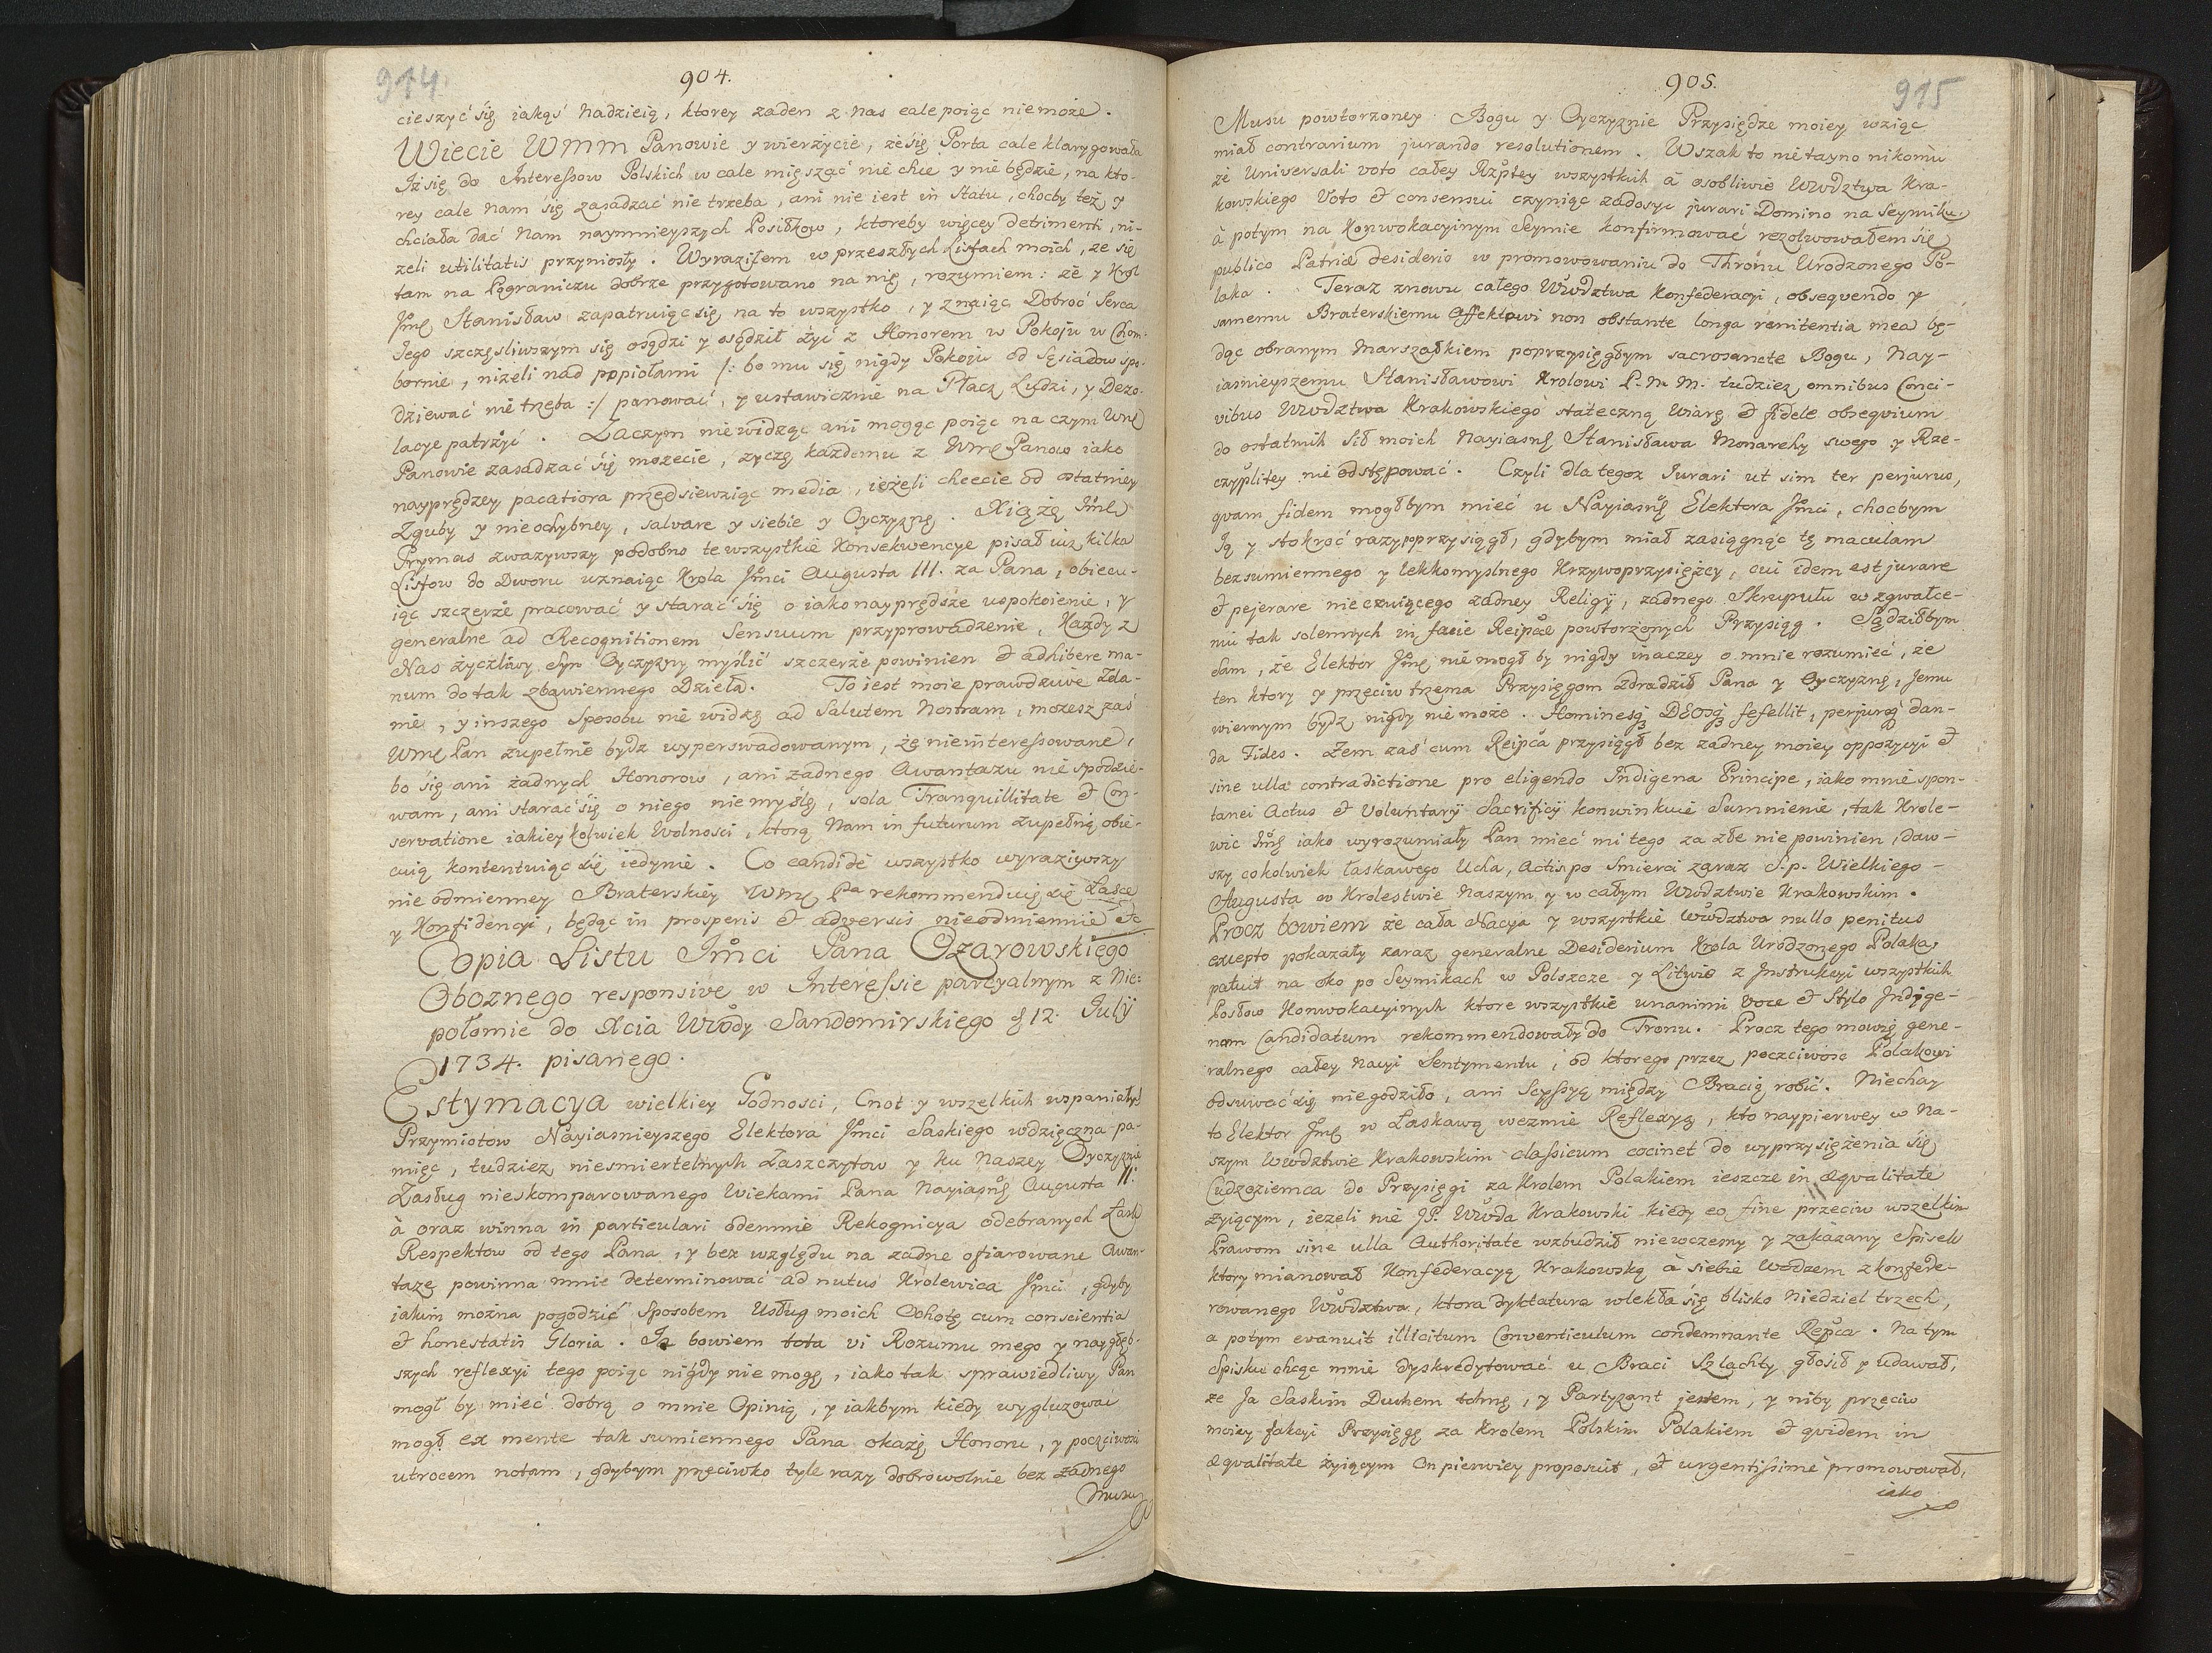 914
904.
cieszyć się iakąś Nadzieią, ktorey zaden z nas cale poiąc nie może.
Wiecie WMM Panowie y wierzycie, że się Porta cale klarygowała
Iż się do Interessow Polskich w cale mięszać nie chce y nie będzie, na kto-
rey cale Nam się zasadzać nie trzeba, ani nie iest in Statu, chocby też y
chciała dać Nam naymnieyszych Posiłkow, ktoreby więcey detrimenti, ni-
żeli utilitatis przyniosły. Wyraziłem w przeszłych Listach moich, że się
tam na Pograniczu dobrze przygotowano na nię, rozumiem: że y Krol
Jmę Stanisław zapatruiąc się na to wszystko, y znaiąc Dobroć Serca
Jego szczęsliwszym się osądzi y osądził żyć z Honorem w Pokoju w Cham-
bornie, niżeli nad popiołami /: bo mu się nigdy Pokoju od Sąsiadow spo-
dziewać nie trzeba :/ panować, y ustawicznie na Płacz Ludzi, y Dezo-
lacye patrzyć. Zaczym nie widząc ani mogąc poiąc na czym Wmę
Panowie zasadzać się możecie, życzę każdemu z Wmę Panow iako
nayprędzey pacatiora przedsiewziąc media, ieżeli chcecie od ostatniey
Zguby y nieochybney, salvare y siebie y Oyczyznę. Xiążę Jmę
Prymas zwazywszy podobno te wszystkie Konsekwencye pisał iuż kilka
Listow do Dworu uznaiąc Krola Jmci Augusta III. za Pana, obiecu-
iąc szczerze pracować y starać się o iako nayprędsze uspokoienie, y
generalne ad Recognitionem Sensuum przyprowadzenie, Każdy z
Nas życzliwy Syn Oyczyzny myślić szczerze powinien et adhibere ma-
num do tak zbawiennego Dzieła. To iest moie prawdziwe Zda-
nie, y inszego Sposobu nie widzę ad Salutem Nostram, możesz zaś
Wmę Pan zupełnie bydz wyperswadowanym, że nieinteressowane,
bo się ani żadnych Honorow, ani żadnego Awantazu nie spodzie-
wam, ani starać się o niego nie myślę, sola Tranquillitate et Con-
servatione iakieykolwiek Wolnosci, ktorą Nam in futurum zupełnię obie-
cuią kontentuiąc się iedynie. Co candidè wszystko wyraziwszy
nieodmienney Braterskiey Wmę Pa rekommenduię się Łasce
y Konfidencyi, będąc in prosperis et adversis nieodmiennie etc
Copia Listu Jmci Pana Ozarowskiego
Oboznego responsivè w Interessie partyalnym z Nie-
połomic do Xcia Wwody Sandomirskiego d 12. Julÿ
1734. pisanego.
Estymacya wielkiey Godnosci, Cnot y wszelkich wspaniałych
Przymiotow Nayiasnieyszego Elektora Jmci Saskiego wdzięczna pa-
mięc, tudzież niesmiertelnych Zaszczytow y ku Naszey Oyczyznie
Zasług nieskomparowanego Wiekami Pana Nayiasnę Augusta II.
à oraz winna in particulari odemnie Rekognicya odebranych Łask
Respektow od tego Pana, y bez względu na żadne ofiarowane Awan-
tazę powinna mnie determinować ad nutus Krolewica Jmci, gdyby
iakim można pogodzić Sposobem Usług moich Ochotę cum conscientia
et honestatis Gloria. Ja bowiem tota vi Rozumu mego y naygłęb-
szych reflexyi tego poiąc nigdy nie mogę, iako tak sprawiedliwy Pan
mogł by mieć dobrą o mnie Opinią, y iakbym kiedy wygluzować
mogł ex mente tak sumiennego Pana okazię Honoru, y poczciwosci
utrocem notam, gdybym przęciwko tyle razy dobrowolnie bez żadnego
Musu
915
905.
Musu powtorzoney Bogu y Oyczyznie Przysiędze moiey wziąc
miał contrarium jurando resolutionem. Wszak to nie tayno nikomu
że Universali voto całey Rzptey wszystkich à osobliwie Wwdztwa Kra-
kowskiego Voto et consensui czyniąc zadosyc jurari Domino na Seymiku
à potym na Konwokacyinym Seymie konfirmować rezolwowałem się
publico Patriæ desiderio w promowowaniu do Thronu Urodzonego Po-
laka. Teraz znowu całego Wwdztwa Konfederacyi, obsequendo y
samemu Braterskiemu Affektowi non obstante longa renitentia mea bę-
dąc obranym Marszałkiem poprzysięgłym sacrosancte Bogu, Nay-
iasnieyszemu Stanisławowi Krolowi P. N. M. tudzież omnibus Conci-
vibus Wwdztwa Krakowskiego stateczną wiarę et fidele obsequium
do ostatnich sił moich Nayiasnę Stanisława Monarchy swego y Rze-
czyplitey nie odstępować. Czyli dla tegoz Jurari ut sim ter perjurus,
quam fidem mogłbym mieć u Nayiasnę Elektora Jmci, chocbym
Ią y stokroć razy poprzysiągł, gdybym miał zasiągnąc tę maculam
bezsumiennego y lekkomyslnego Krzywoprzysięzcy, cui idem est jurare
et pejerare nieczuiącego żadney Religÿ, żadnego Skrupułu w zgwałce-
niu tak solennych in facie Reipcæ powtorzonych Przysiąg. Sądziłbym
sam, że Elektor Jmę nie mogł by nigdy inaczey o mnie rozumieć, że
ten ktory y przęciw trzema Przysięgom zdradził Pana y Oyczyznę, Jemu
wiernym bydz nigdy nie może. Hominesq DEOsq fefellit, perjurog dan-
da Fides. Żem zaś cum Reipca przysiągł bez żadney moiey oppozycyi et
sine ulla contradictione pro eligendo Indigena Principe, iako mnie spon-
tanei Actus et Voluntarÿ Sacrificÿ konwinkuie Sumnienie, tak Krole-
wic Jmę iako wyrozumiały Pan mieć mi tego za złe nie powinien, daw-
szy cokolwiek łaskawego Ucha, Actis po Smierci zaraz S. p. Wielkiego
Augusta w Krolestwie Naszym y w całym Wwdztwie Krakowskim.
Procz bowiem że cała Nacya y wszystkie Wwdztwa nullo penitus
excepto pokazały zaraz generalne Desiderium Krola Urodzonego Polaka,
patuit na oko po Seymikach w Polszcze y Litwie z Instrukcyi wszystkich
Posłow Konwokacyinych ktore wszystkie unanimi voce et Stylo Indige-
nam Candidatum rekommendowały do Tronu. Procz tego mowię gene-
ralnego całey Nacyi Sentymentu, od ktorego przez poczciwosc Polakowi
odsuwać się nie godziło, ani Scyssyę między Bracią robić. Niechay
to Elektor Jmę w Łaskawą wezmie Reflexyą, kto naypierwey w Na-
szym Wwdztwie Krakowskim classicum cecinet do wyprzysiężenia się
Cudzoziemca do Przysięgi za Krolem Polakiem ieszcze in æqualitate
żyiącym, ieżeli nie JP. Wwda Krakowski kiedy eo fine przeciw wszelkim
Prawom sine ulla Authoritate wzbudził niewczesny y zakazany Spisek
ktory mianował Konfederacyą Krakowską à siebie Wodzem zkonfede-
rowanego Wwdztwa, ktora dyktatura wlekła się blisko Niedziel trzech,
a potym evanuit illicitum Conventiculum condemnante Repca. Na tym
Spisku chcąc mnie dyskredytować u Braci Szlachty głosił y udawał,
że Ja Saskim Duchem tchnę, y Partyzant jestem, y niby przeciw
moiey fakcyi Przysięgę za Krolem Polskim Polakiem et quidem in
æqualitate żyiącym On pierwiey proposuit, et urgentissime promowował,
iako